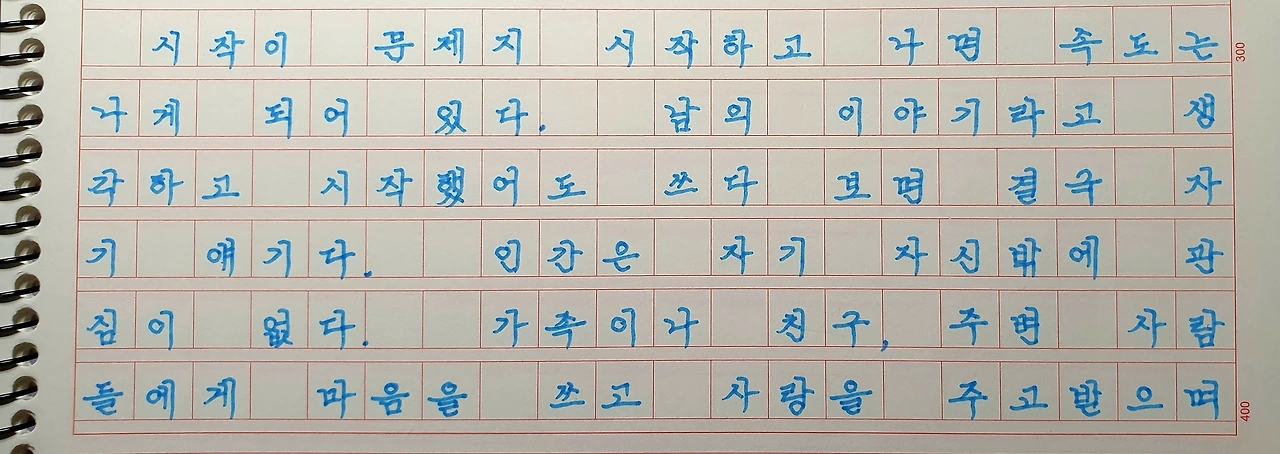 시작이 문제지 시작하고 나면 속도는 300
나게 되어 있다. 남의 이야기라고 생
각하고 시작했어도 쓰다 보면 결국 자
기 얘기다. 인간은 자기 자신밖에 관
심이 없다. 가족이나 친구, 주변 사람
들에게 마음을 쓰고 사랑을 주고받으며 400